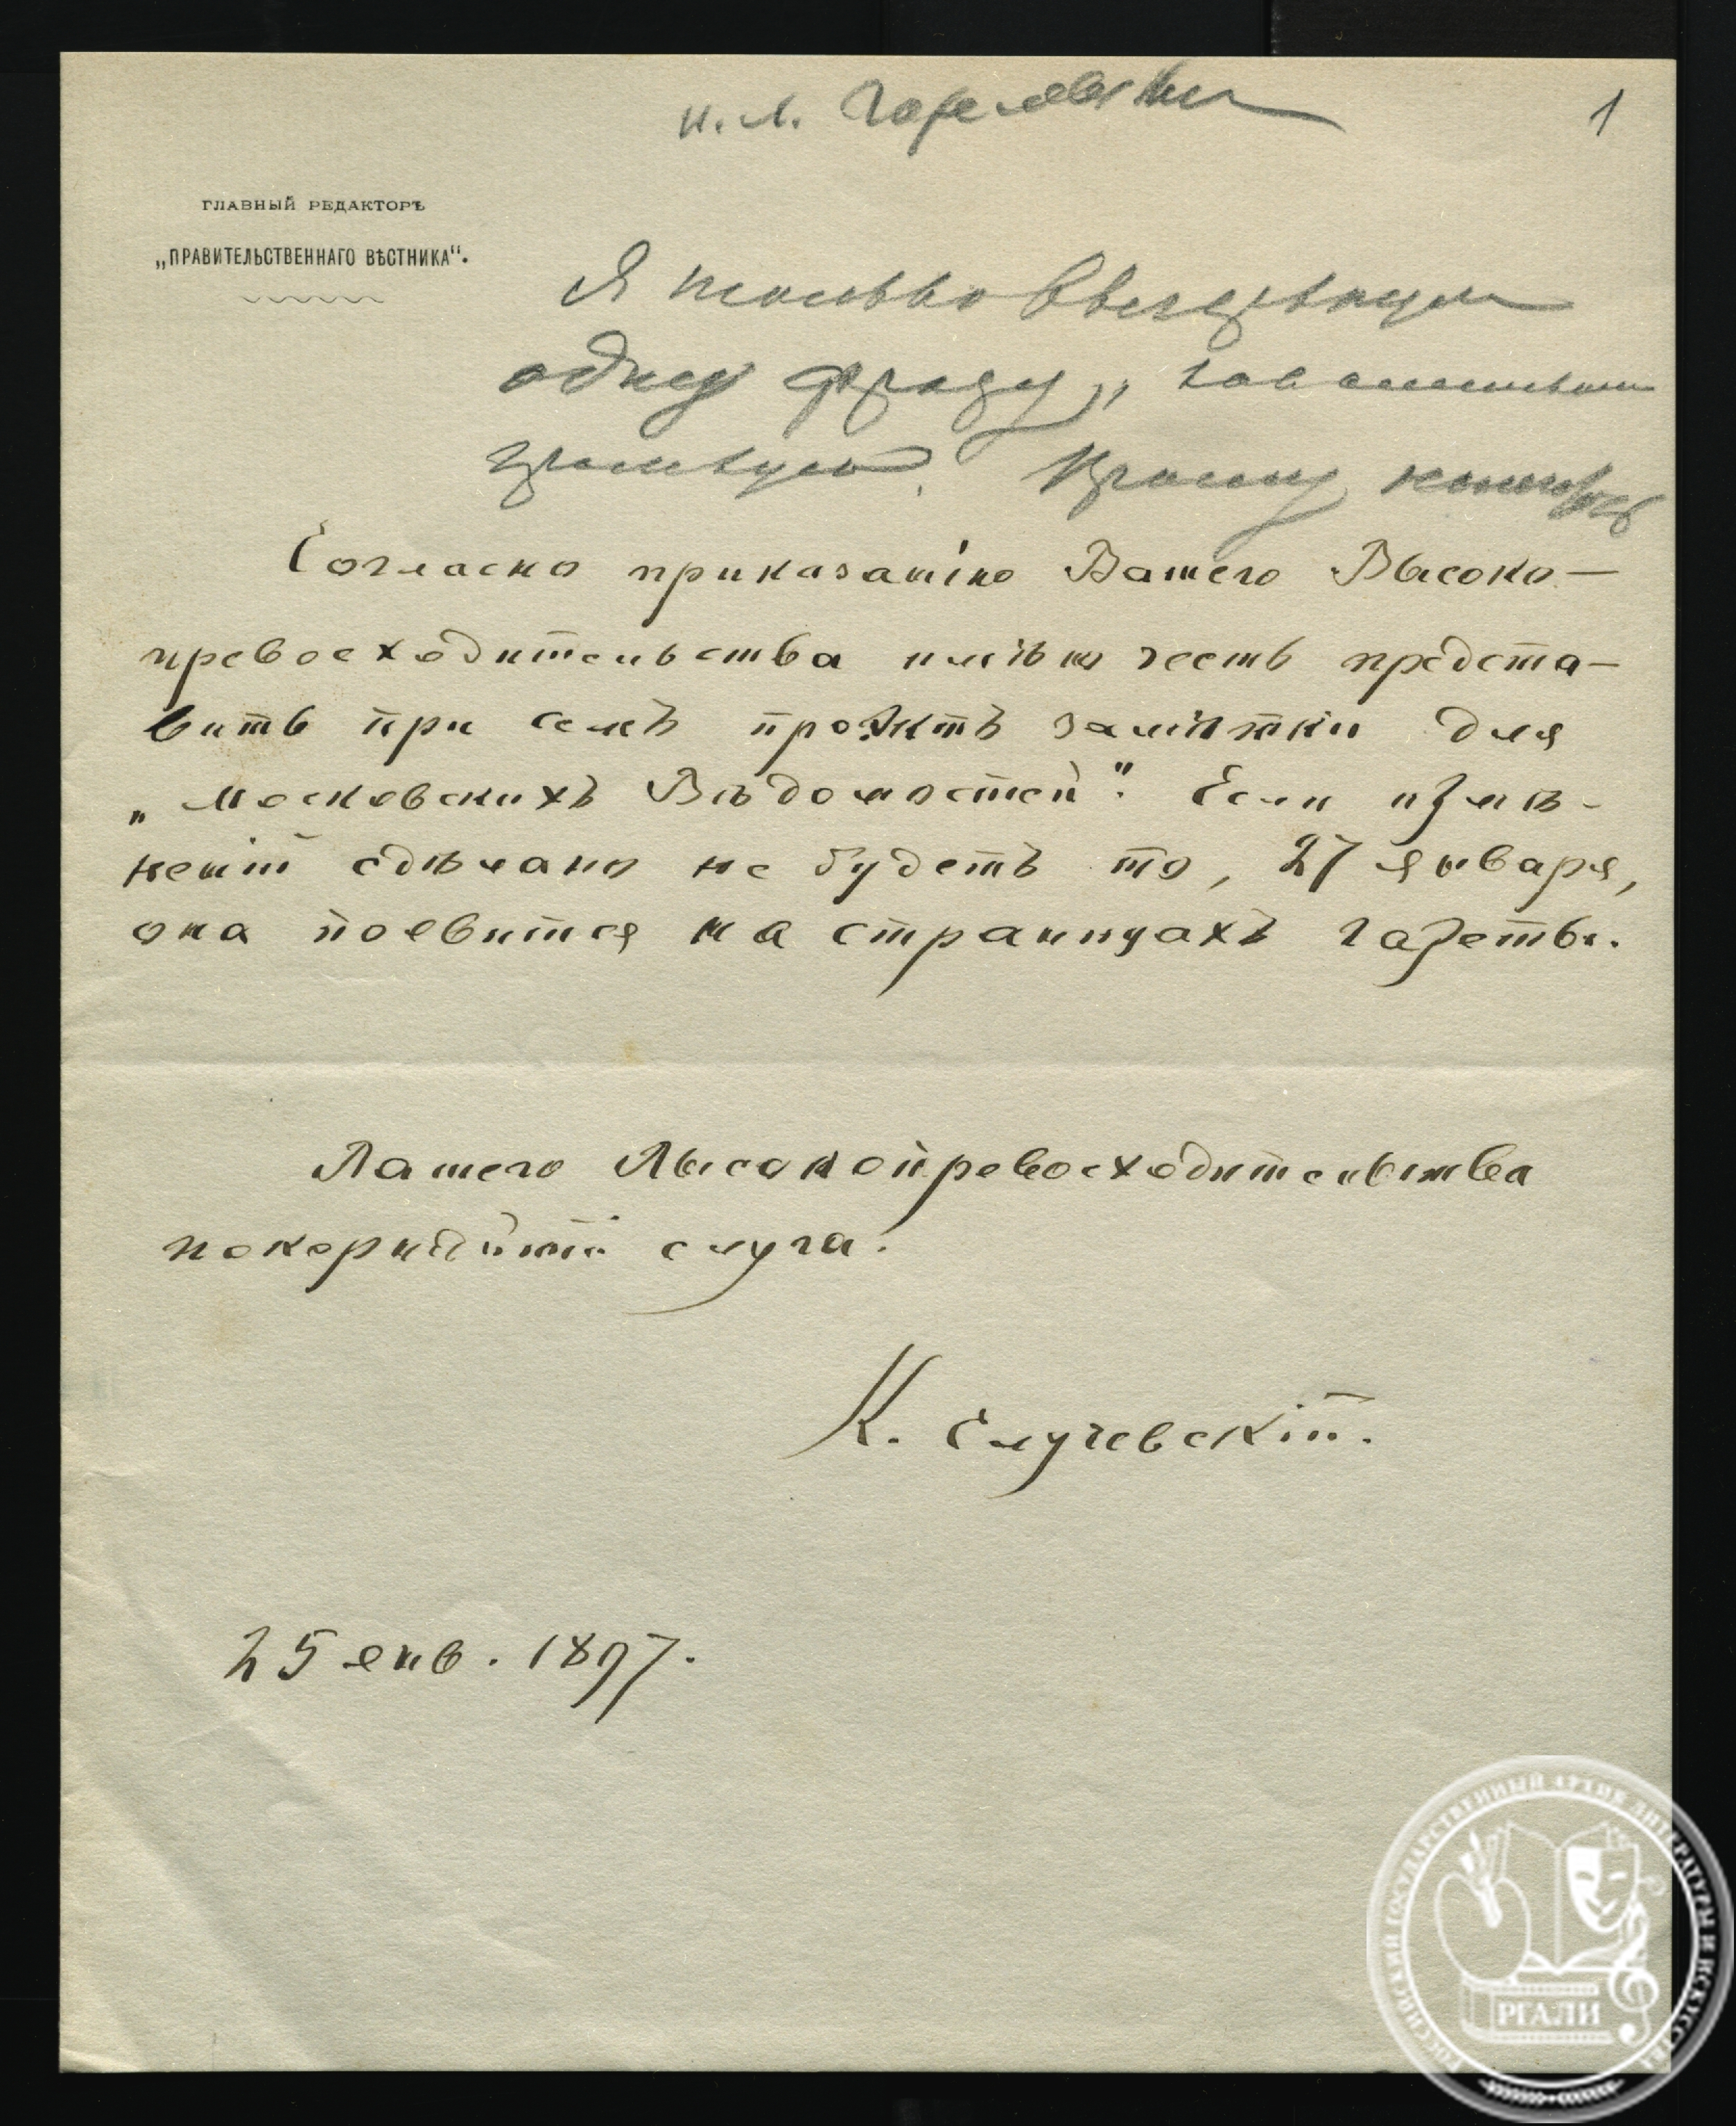 1
ГЛАВНЫЙ РЕДАКТОРЪ
„ПРАВИТЕЛЬСТВЕННАГО ВѢСТНИКА“.
Я только
одну фразу,
Прошу
Согласно приказанію Вашего Высоко-
превосходительства имѣю честь предста-
вить при семъ проэктъ замѣтки для
„Московскихъ Вѣдомостей“. Если измѣ-
неній сдѣлано не будетъ то, 27 января,
она появится на страницахъ газеты.
Вашего Высокопревосходительства
покорнѣйшій слуга.
К. Случевскій.
25 янв. 1897.
РОССИЙСКИЙ ГОСУДАРСТВЕННЫЙ АРХИВ ЛИТЕРАТУРЫ И ИСКУССТВА
РГАЛИ